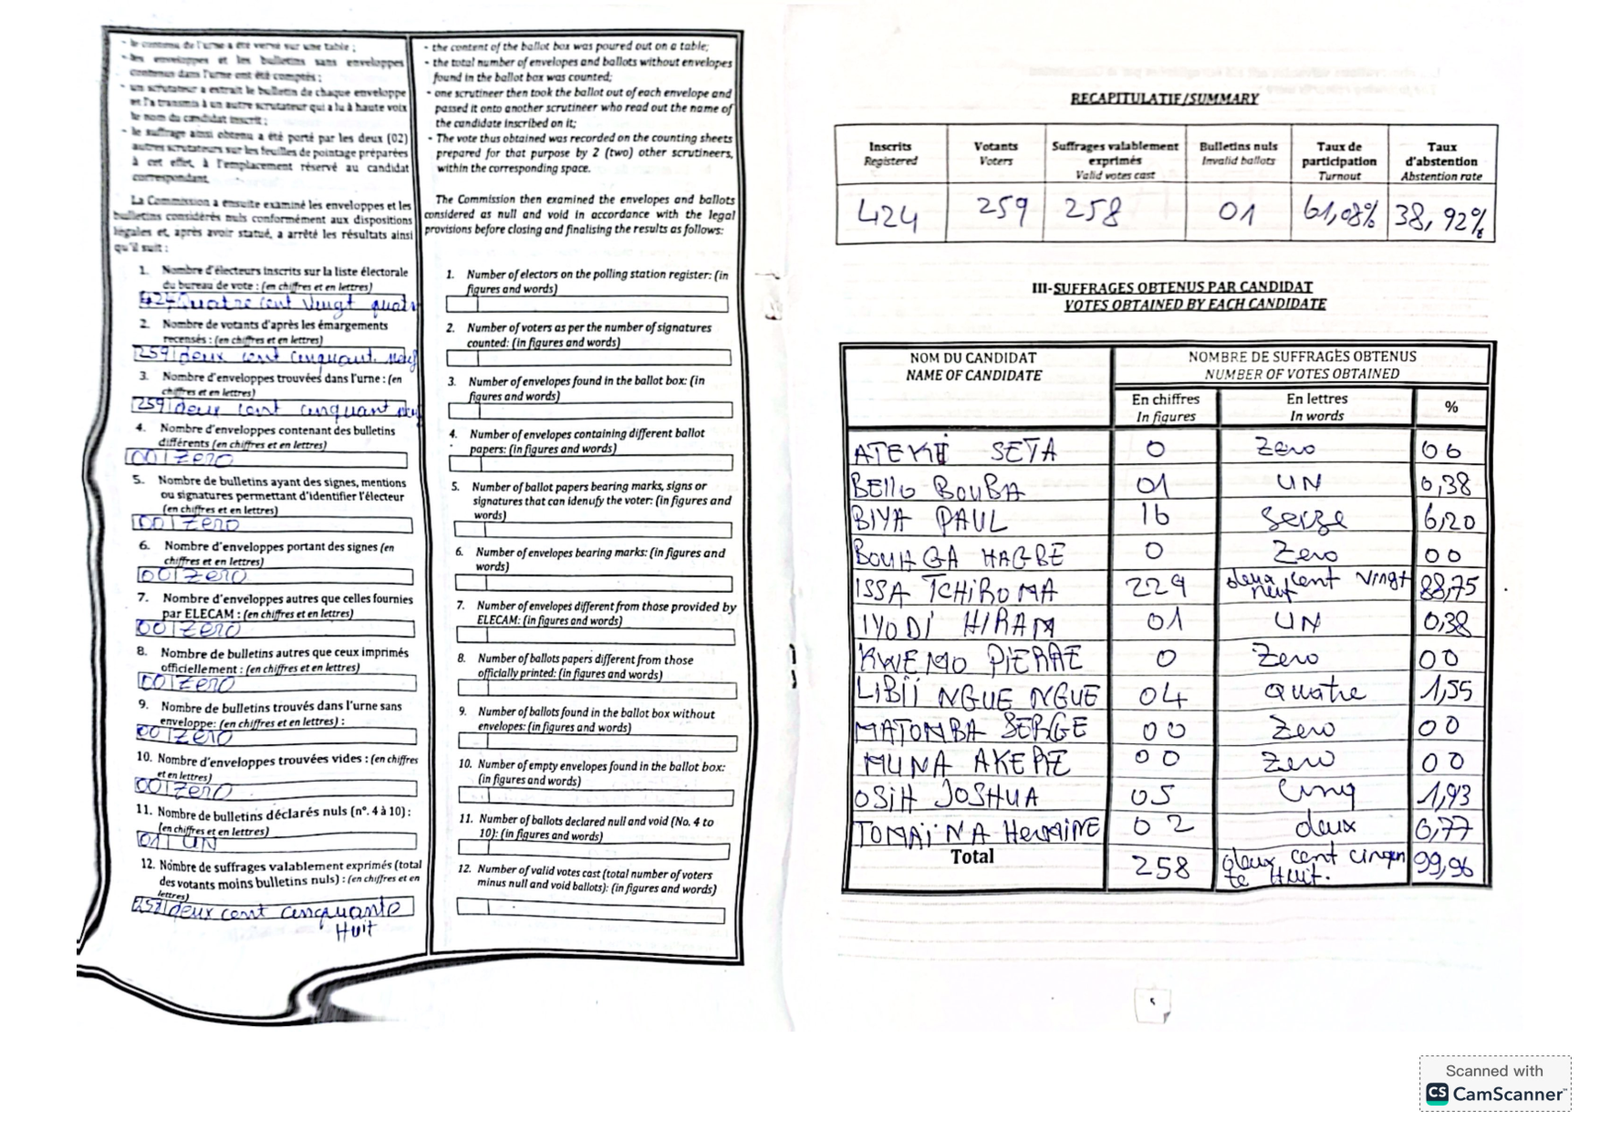 - le contenu de l'urne a été versé sur une table ;
- les enveloppes et les bulletins sans enveloppes
contenus dans l'urne ont été comptés ;
- un scrutateur a extrait le bulletin de chaque enveloppe
et l'a transmis à un autre scrutateur qui a lu à haute voix
le nom du candidat inscrit ;
- le suffrage ainsi obtenu a été porté par les deux (02)
autres scrutateurs sur les feuilles de pointage préparées
à cet effet, à l'emplacement réservé au candidat
correspondant.
La Commission a ensuite examiné les enveloppes et les
bulletins considérés nuls conformément aux dispositions
légales et, après avoir statué, a arrêté les résultats ainsi
qu'il suit :
1. Nombre d'électeurs inscrits sur la liste électorale
du bureau de vote : (en chiffres et en lettres)
424 Quatre cent vingt quatr
2. Nombre de votants d'après les émargements
recensés : (en chiffres et en lettres)
259 deux cent cinquant neuf
3. Nombre d'enveloppes trouvées dans l'urne : (en
chiffres et en lettres)
259 deux cent cinquant
4. Nombre d'enveloppes contenant des bulletins
différents (en chiffres et en lettres)
00 zero
5. Nombre de bulletins ayant des signes, mentions
ou signatures permettant d'identifier l'électeur
(en chiffres et en lettres)
00 zero
6. Nombre d'enveloppes portant des signes (en
chiffres et lettres)
00 zero
7. Nombre d'enveloppes autres que celles fournies
par ELECAM : (en chiffres et en lettres)
00 zero
8. Nombre de bulletins autres que ceux imprimés
officiellement : (en chiffres et en lettres)
00 zero
9. Nombre de bulletins trouvés dans l'urne sans
enveloppe: (en chiffres et en lettres) :
00 zero
10. Nombre d'enveloppes trouvées vides : (en chiffres
et en lettres)
00 zero
11. Nombre de bulletins déclarés nuls (n°. 4 à 10) :
(en chiffres et en lettres)
01 UN
12. Nombre de suffrages valablement exprimés (total
des votants moins bulletins nuls) : (en chiffres et en
lettres)
258 deux cent cinquante
Huit
- the content of the ballot box was poured out on a table;
- the total number of envelopes and ballots without envelopes
found in the ballot box was counted;
- one scrutineer then took the ballot out of each envelope and
passed it onto another scrutineer who read out the name of
the candidate inscribed on it;
- The vote thus obtained was recorded on the counting sheets
prepared for that purpose by 2 (two) other scrutineers,
within the corresponding space.
The Commission then examined the envelopes and ballots
considered as null and void in accordance with the legal
provisions before closing and finalising the results as follows:
1. Number of electors on the polling station register: (in
figures and words)
2. Number of voters as per the number of signatures
counted: (in figures and words)
3. Number of envelopes found in the ballot box: (in
figures and words)
4. Number of envelopes containing different ballot
papers: (in figures and words)
5. Number of ballot papers bearing marks, signs or
signatures that can idenufy the voter: (in figures and
words)
6. Number of envelopes bearing marks: (in figures and
words)
7. Number of envelopes different from those provided by
ELECAM: (in figures and words)
8. Number of ballots papers different from those
officially printed: (in figures and words)
9. Number of ballots found in the ballot box without
envelopes: (in figures and words)
10. Number of empty envelopes found in the ballot box:
(in figures and words)
11. Number of ballots declared null and void (No. 4 to
10): (in figures and words)
12. Number of valid votes cast (total number of voters
minus null and void ballots): (in figures and words)
RECAPITULATIF/SUMMARY
Inscrits Registered Votants Voters Suffrages valablement exprimés Valid votes cast Bulletins nuls Invalid ballots Taux de participation Turnout Taux d'abstention Abstention rate
424 259 258 01 61,08% 38,92%
III-SUFFRAGES OBTENUS PAR CANDIDAT
VOTES OBTAINED BY EACH CANDIDATE
NOM DU CANDIDAT NOMBRE DE SUFFRAGES OBTENUS
NAME OF CANDIDATE NUMBER OF VOTES OBTAINED
En chiffres En lettres %
In figures In words
ATEKI SETA 0 Zero 00
BELLO BOUBA 01 UN 0,38
BIYA PAUL 16 Seize 6,20
BOUHGA HAGBE 0 Zero 00
ISSA TCHIROMA 229 deux cent vingt neuf 88,75
IYODI HIRAM 01 UN 0,38
KWEMO PIERRE 0 Zero 00
LIBII NGUE NGUE 04 Quatre 1,55
MATOMBA SERGE 00 Zero 00
MUNA AKERE 00 Zero 00
OSIH JOSHUA 05 Cinq 1,93
TOMAÏNA HERMINE 02 deux 0,77
Total 258 deux cent cinquante Huit. 99,96
Scanned with
CS CamScanner